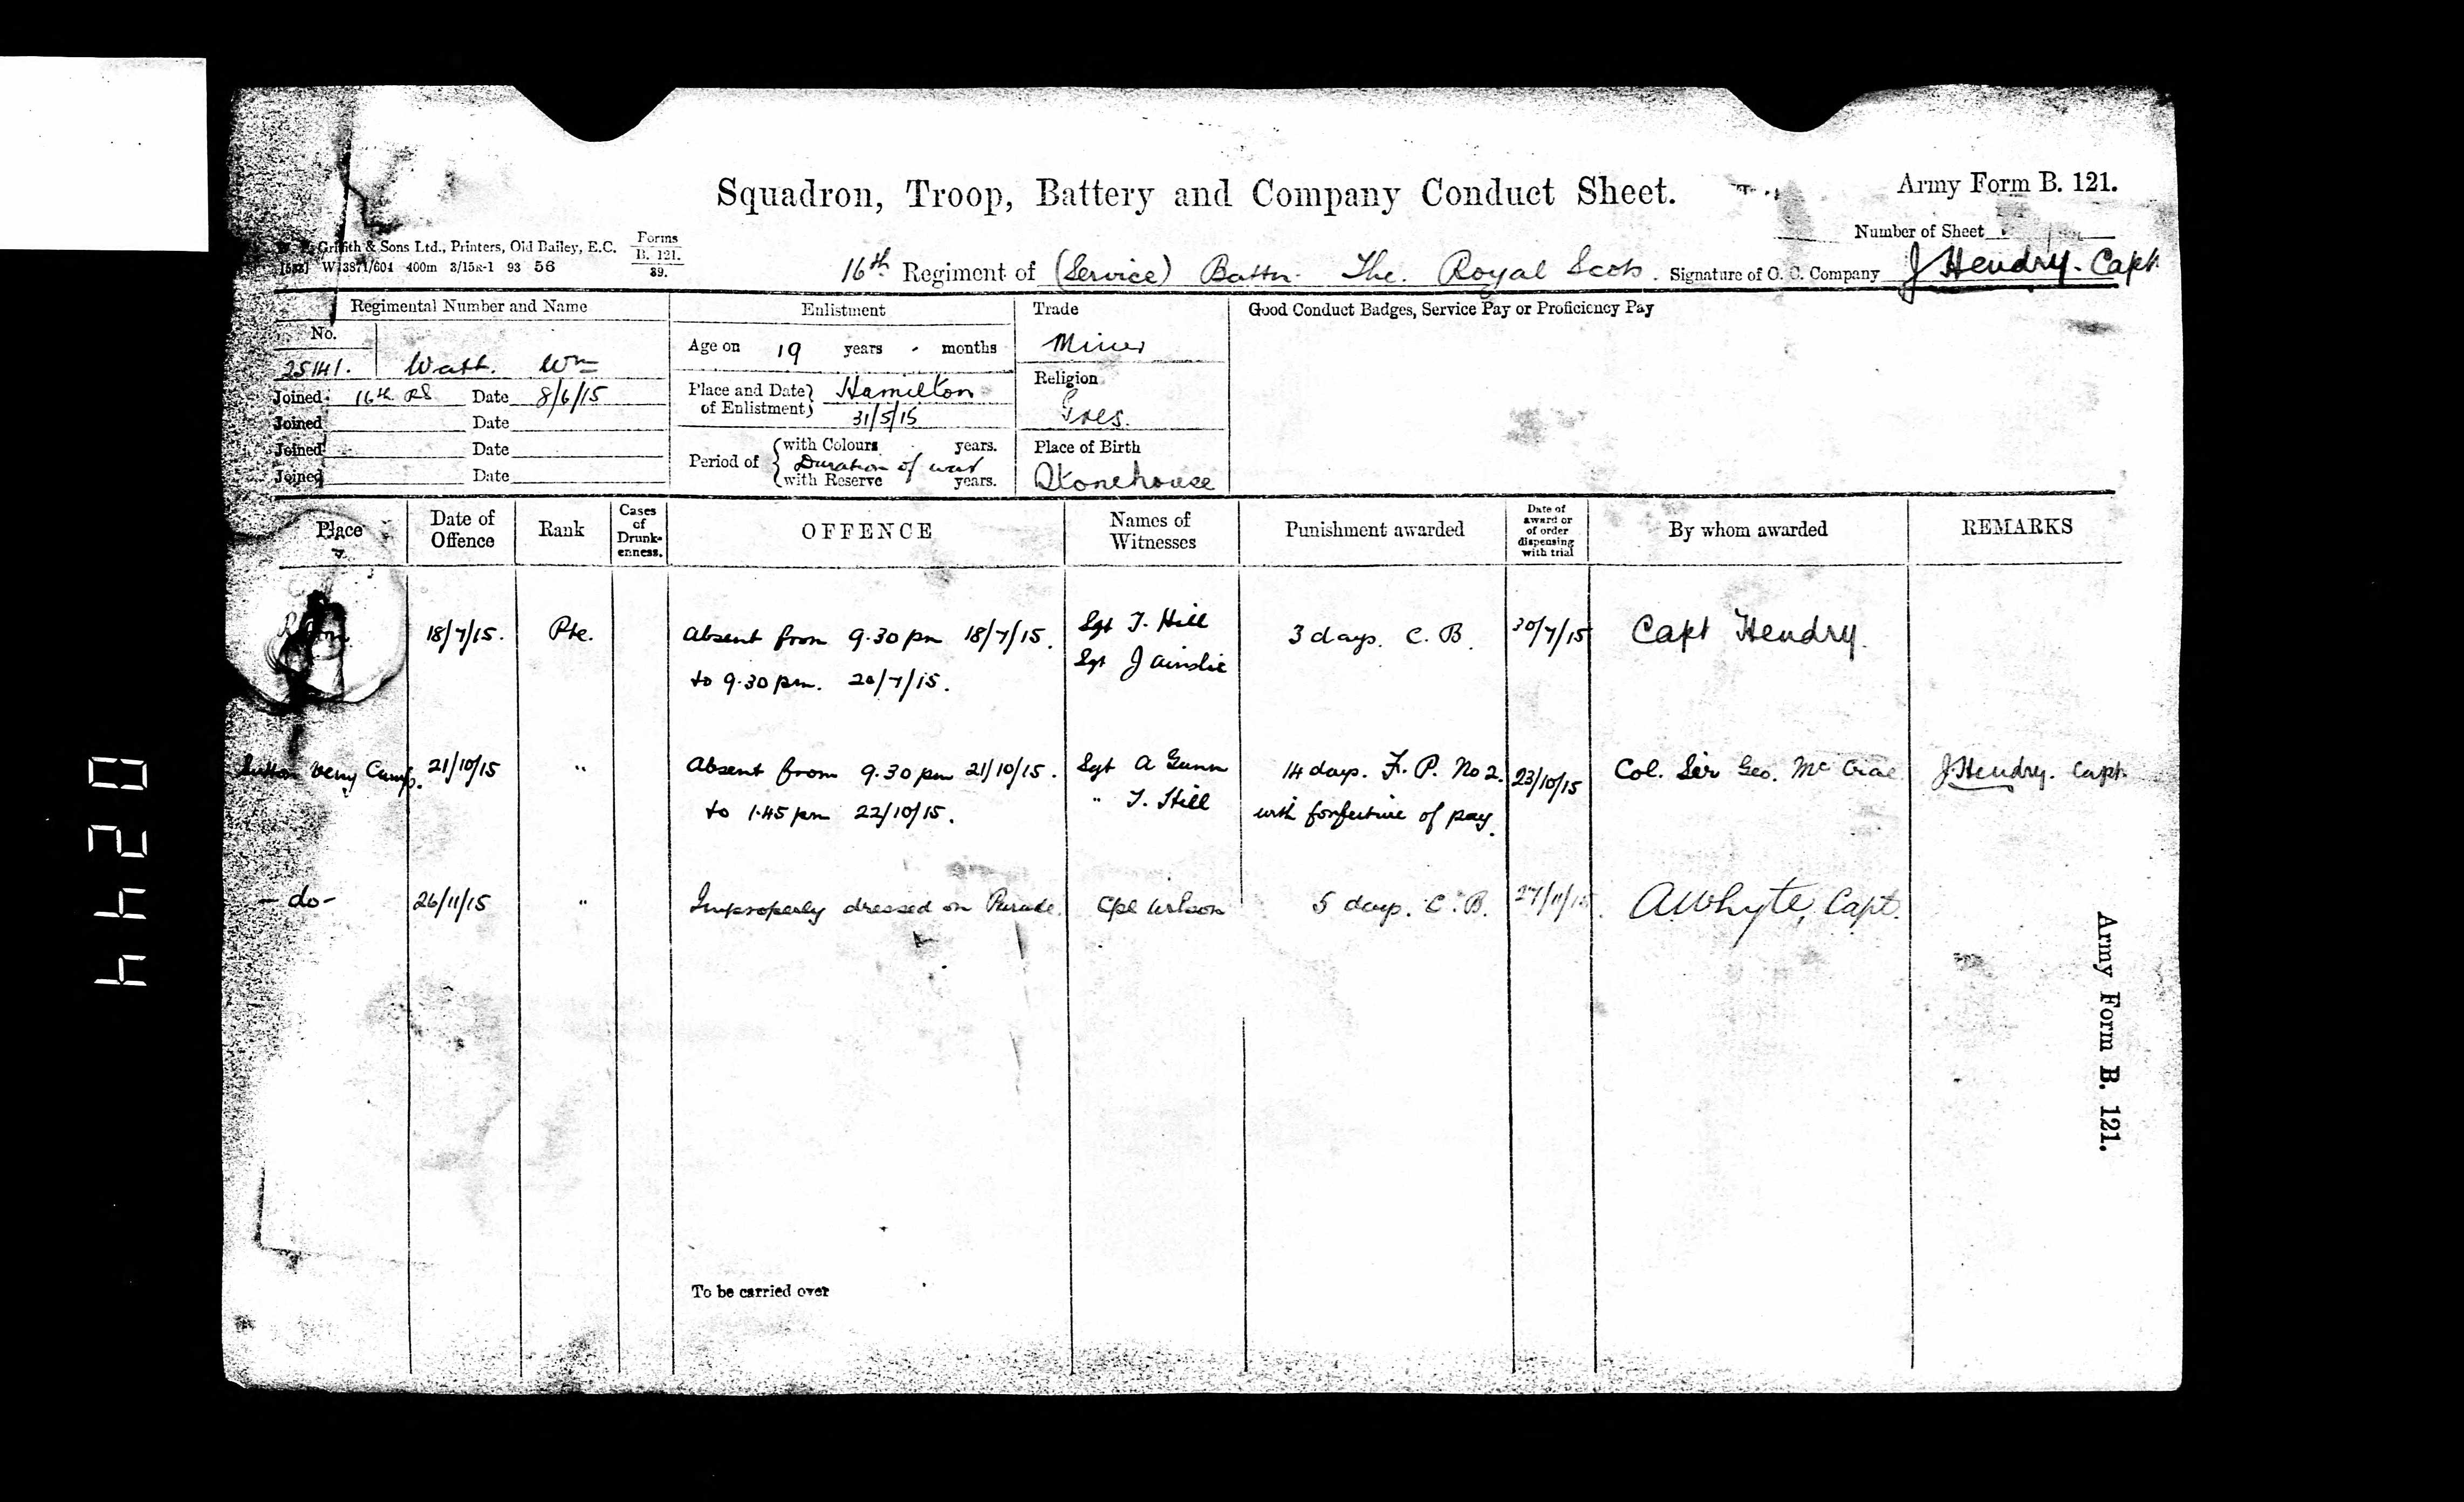 Squadron, Troop, Battery and Company Conduct Sheet.
Army Form B. 121.
Number of Sheet
Griffith & Sons Ltd., Printers, Old Bailey, E.C.
W13871/604 400m 3/15 R-1 93 56
Forms
B. 121.
39.
16th Regiment of (Service) Battn. The. Royal Scots. Signature of O. C. Company J Hendry. Capt
Regimental Number and Name
Enlistment
Trade
Good Conduct Badges, Service Pay or Proficiency Pay
No.
25141. Watt. Wm
Age on 19 years - months
Miner
Joined 16th RS Date 8/6/15
Place and Date of Enlistment Hamilton
31/5/15
Religion
Pres.
Joined Date
Joined Date
Joined Date
Period of with Colours years.
Duration of war
with Reserve years.
Place of Birth
Stonehouse
Place
Date of Offence
Rank
Cases of Drunk-enness.
OFFENCE
Names of Witnesses
Punishment awarded
Date of award or of order dispensing with trial
By whom awarded
REMARKS
18/7/15. Pte. Absent from 9.30 pm 18/7/15. Sgt T. Hill 3 days. C. B. 20/7/15 Capt Hendry.
to 9.30 pm. 20/7/15. Sgt J Ainslie
Sutton Veny Camp. 21/10/15 " Absent from 9.30 pm 21/10/15. Sgt A Gunn 14 days. F. P. No 2. 23/10/15 Col. Sir Geo. Mc Crae J. Hendry. Capt.
to 1.45 pm 22/10/15. " T. Hill with forfeiture of pay.
- do - 26/11/15 " Improperly dressed on Parade. Cpl Wilson 5 days. C. B. 27/11/15. A Whyte, Capt.
To be carried over
Army Form B. 121.
0244